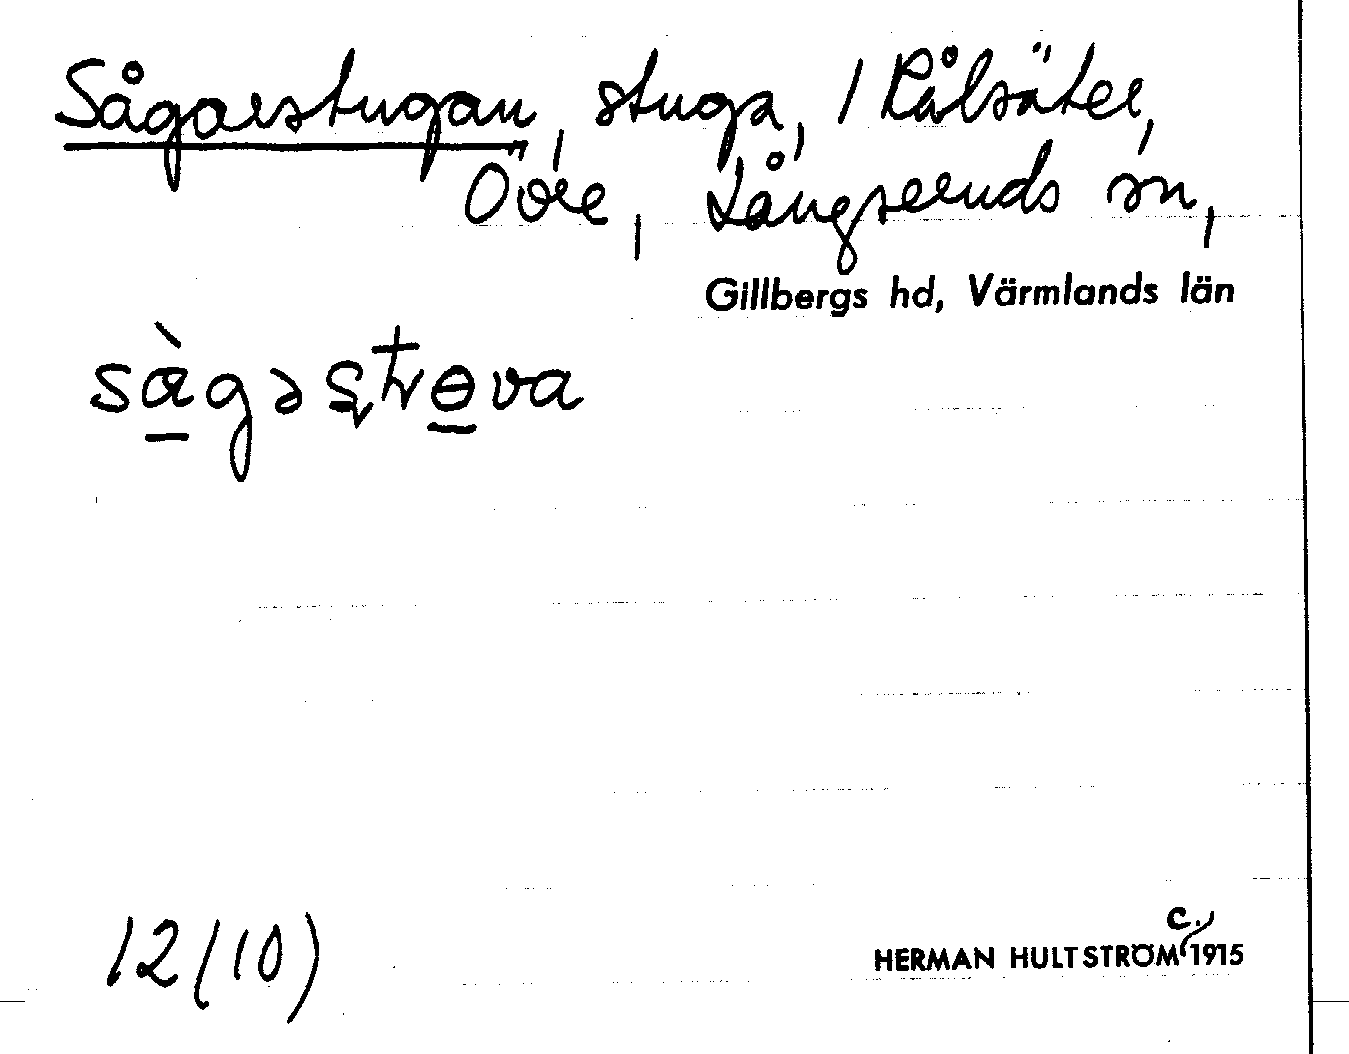 Sågarstugan, stuga, 1 Rålsäter,
Övre, Långseruds sn,
Gillbergs hd, Värmlands län
12 (10)
c.
HERMAN HULTSTRÖM 1915